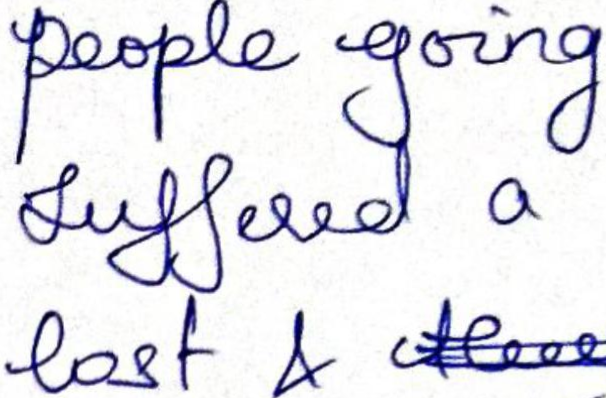 people going
suffered a
lost &